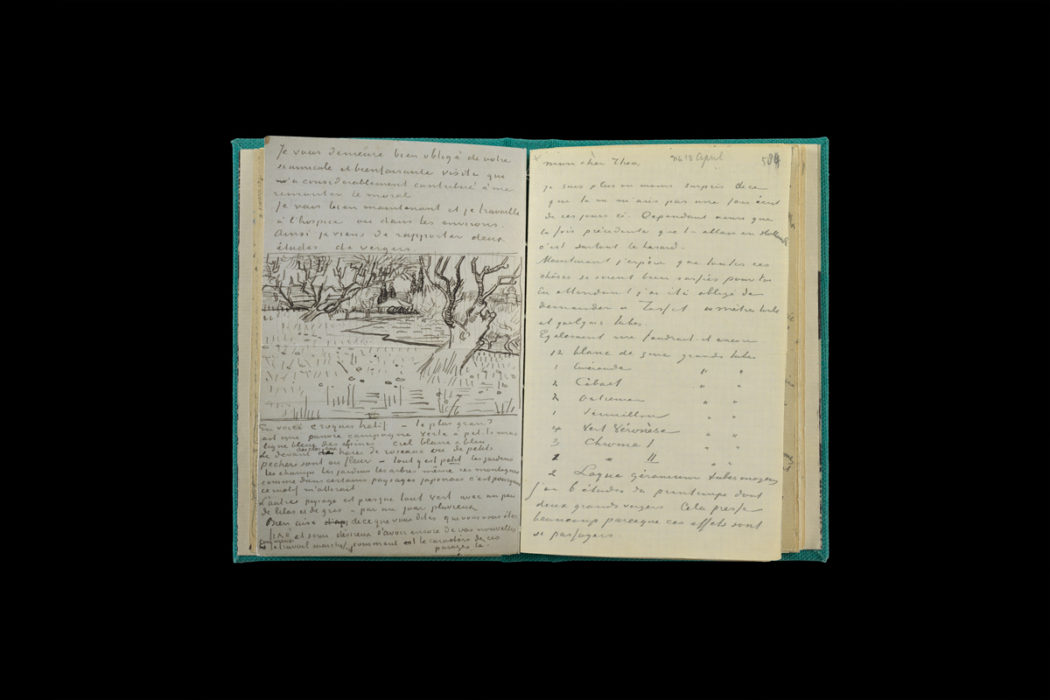 Je vous demeure bien obligé de votre
si amicale et bienfaisante visite qui
a considérablement contribué à me
remonter le moral
Je vais bien maintenant et je travaille
à l'hospice ou dans les environs.
Ainsi je viens de rapporter deux
études de vergers.
En voici croquis hatif – le plus grand
est une pauvre campagne verte à petits mas
ligne bleue des Alpines ciel blanc & bleu
Le devant haies de roseaux où de petits
pechers sont en fleur – tout y est petit les jardins
les champs les jardins les arbres même ces montagnes
comme dans certains paysages japonais c'est pourquoi
ce motif m'attirait
L'autre paysage est presque tout vert avec un peu
de lilas et de gris – par un jour pluvieux
Bien aise de ce que vous dites que vous vous êtes
fixé et suis désireux d'avoir encore de vos nouvelles
le travail marche, comment est le caractère de ces
parages là
mon cher Theo, 18 April
je suis plus ou moins surpris de ce
que tu ne m'aies pas une fois écrit
de ces jours ci. Cependant ainsi que
la fois précédente que t'allais en Hollande
c'est surtout le hasard.
Maintenant j'espère que toutes ces
choses se seront bien passées pour toi
En attendant j'ai été obligé de
demander à Tasset mètres toile
et quelques tubes.
Egalement me faudrait il encore
12 blanc de zinc grands tubes
1 émeraude " "
2 Cobalt " "
2 Outremer " "
1 Vermillon " "
4 Vert Véronèse " "
3 Chrome I " "
2 " II " "
2 Laque géranium tubes moyens
J'en 6 études du printemps dont
deux grands vergers Cela presse
beaucoup parceque ces effets sont
si passagers